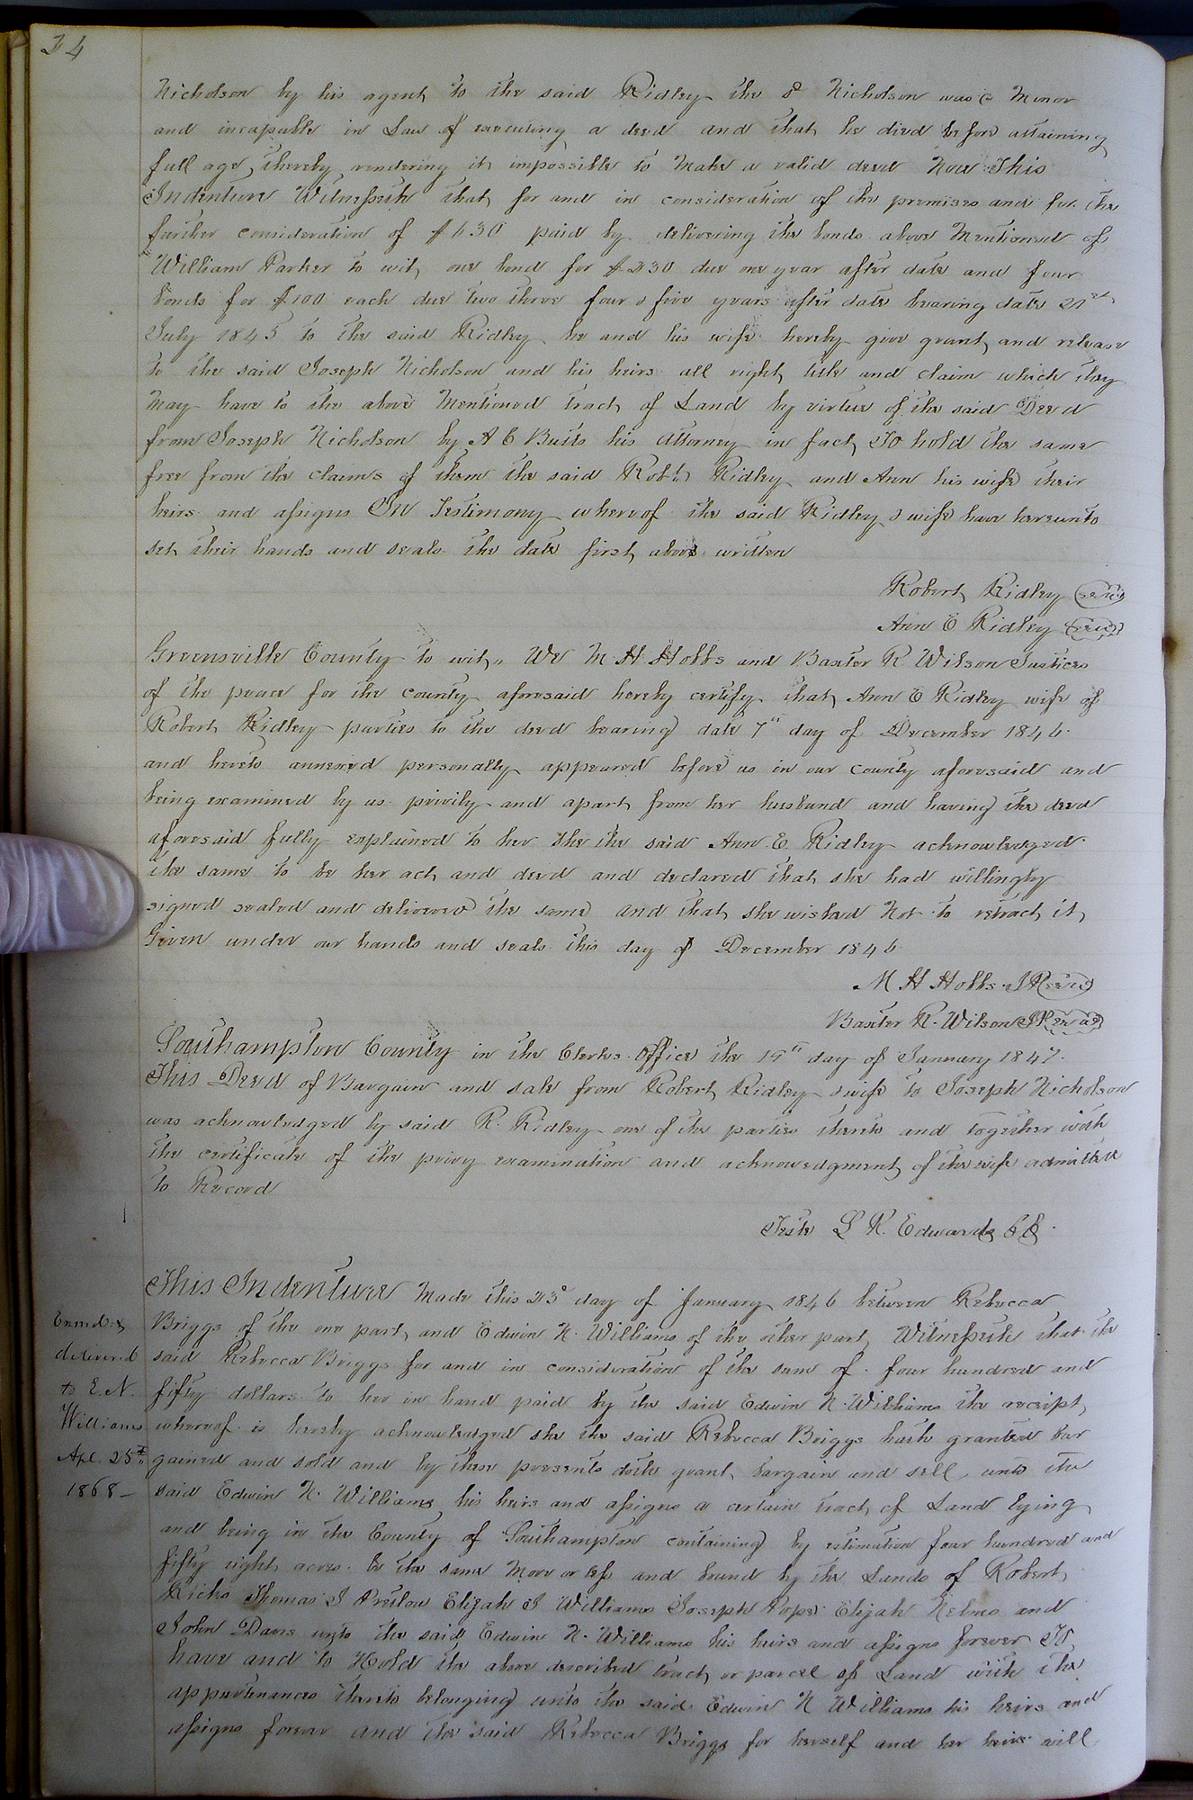 34
Nicholson by his agent to the said Ridley the sd Nicholson was a Minor
and incapable in Law of executing a deed and that he died before attaining
full age, thereby rendering it impossible to Make a valid deed Now This
Indenture Witnesseth that for and in consideration of the premises and for the
further consideration of $630 paid by delivering the bonds above Mentioned of
William Parker to wit, one bond for $230 due one year after date and four
bonds for $100 each due two three four & five years after date bearing date 21st
July 1845 to the said Ridley he and his wife hereby give grant and release
to the said Joseph Nicholson and his heirs all right title and claim which they
May have to the above Mentioned tract of Land by virtue of the said Deed
from Joseph Nicholson by A C Butts his attorney in fact, To hold the same
free from the claims of them the said Robt Ridley and Ann his wife their
heirs and assigns In Testimony whereof the said Ridley & wife have hereunto
set their hands and seals the date first above written
Robert Ridley (seal)
Ann E Ridley (seal)
Greensville County to wit, We M H Hobbs and Baxter R Wilson Justices
of the peace for the county aforesaid hereby certify that Ann E Ridley wife of
Robert Ridley parties to the deed bearing date 7th day of December 1846
and hereto annexed personally appeared before us in our county aforesaid and
being examined by us privily and apart from her husband and having the deed
aforesaid fully explained to her she the said Ann E. Ridley acknowledged
the same to be her act and deed and declared that she had willingly
signed sealed and delivered the same and that she wished Not to retract it,
Given under our hands and seals this day of December 1846
M H Hobbs JP (seal)
Baxter R. Wilson JP (seal)
Southampton County in the Clerks Office the 19th day of January 1847.
This Deed of Bargain and sale from Robert Ridley & wife to Joseph Nicholson
was acknowledged by said R. Ridley one of the parties thereto and together with
the certificate of the privy examination and acknowledgment of the wife admitted
to Record
Teste L R. Edwards CC
This Indenture Made this 23d day of January 1846 between Rebecca
Briggs of the one part, and Edwin N. Williams of the other part, Witnesseth that the
said Rebecca Briggs for and in consideration of the sum of four hundred and
fifty dollars to her in hand paid by the said Edwin N. Williams the receipt
whereof is hereby acknowledged she the said Rebecca Briggs hath granted bar
gained and sold and by these presents doth grant, bargain and sell unto the
said Edwin N. Williams his heirs and assigns a certain tract of Land lying
and being in the County of Southampton containing by estimation four hundred and
fifty eight acres be the same More or less and bound by the Lands of Robert
Ricks Thomas J Pretlow Elijah J Williams Joseph Pope Elijah Helms and
John Davis unto the said Edwin N. Williams his heirs and assigns forever To
have and to Hold the above described tract or parcel of Land with the
appurtenances thereto belonging unto the said Edwin N Williams his heirs and
assigns forever and the said Rebecca Briggs for herself and her heirs will
Examd. &
delivered
to E. N.
Williams
Apl. 25th
1868